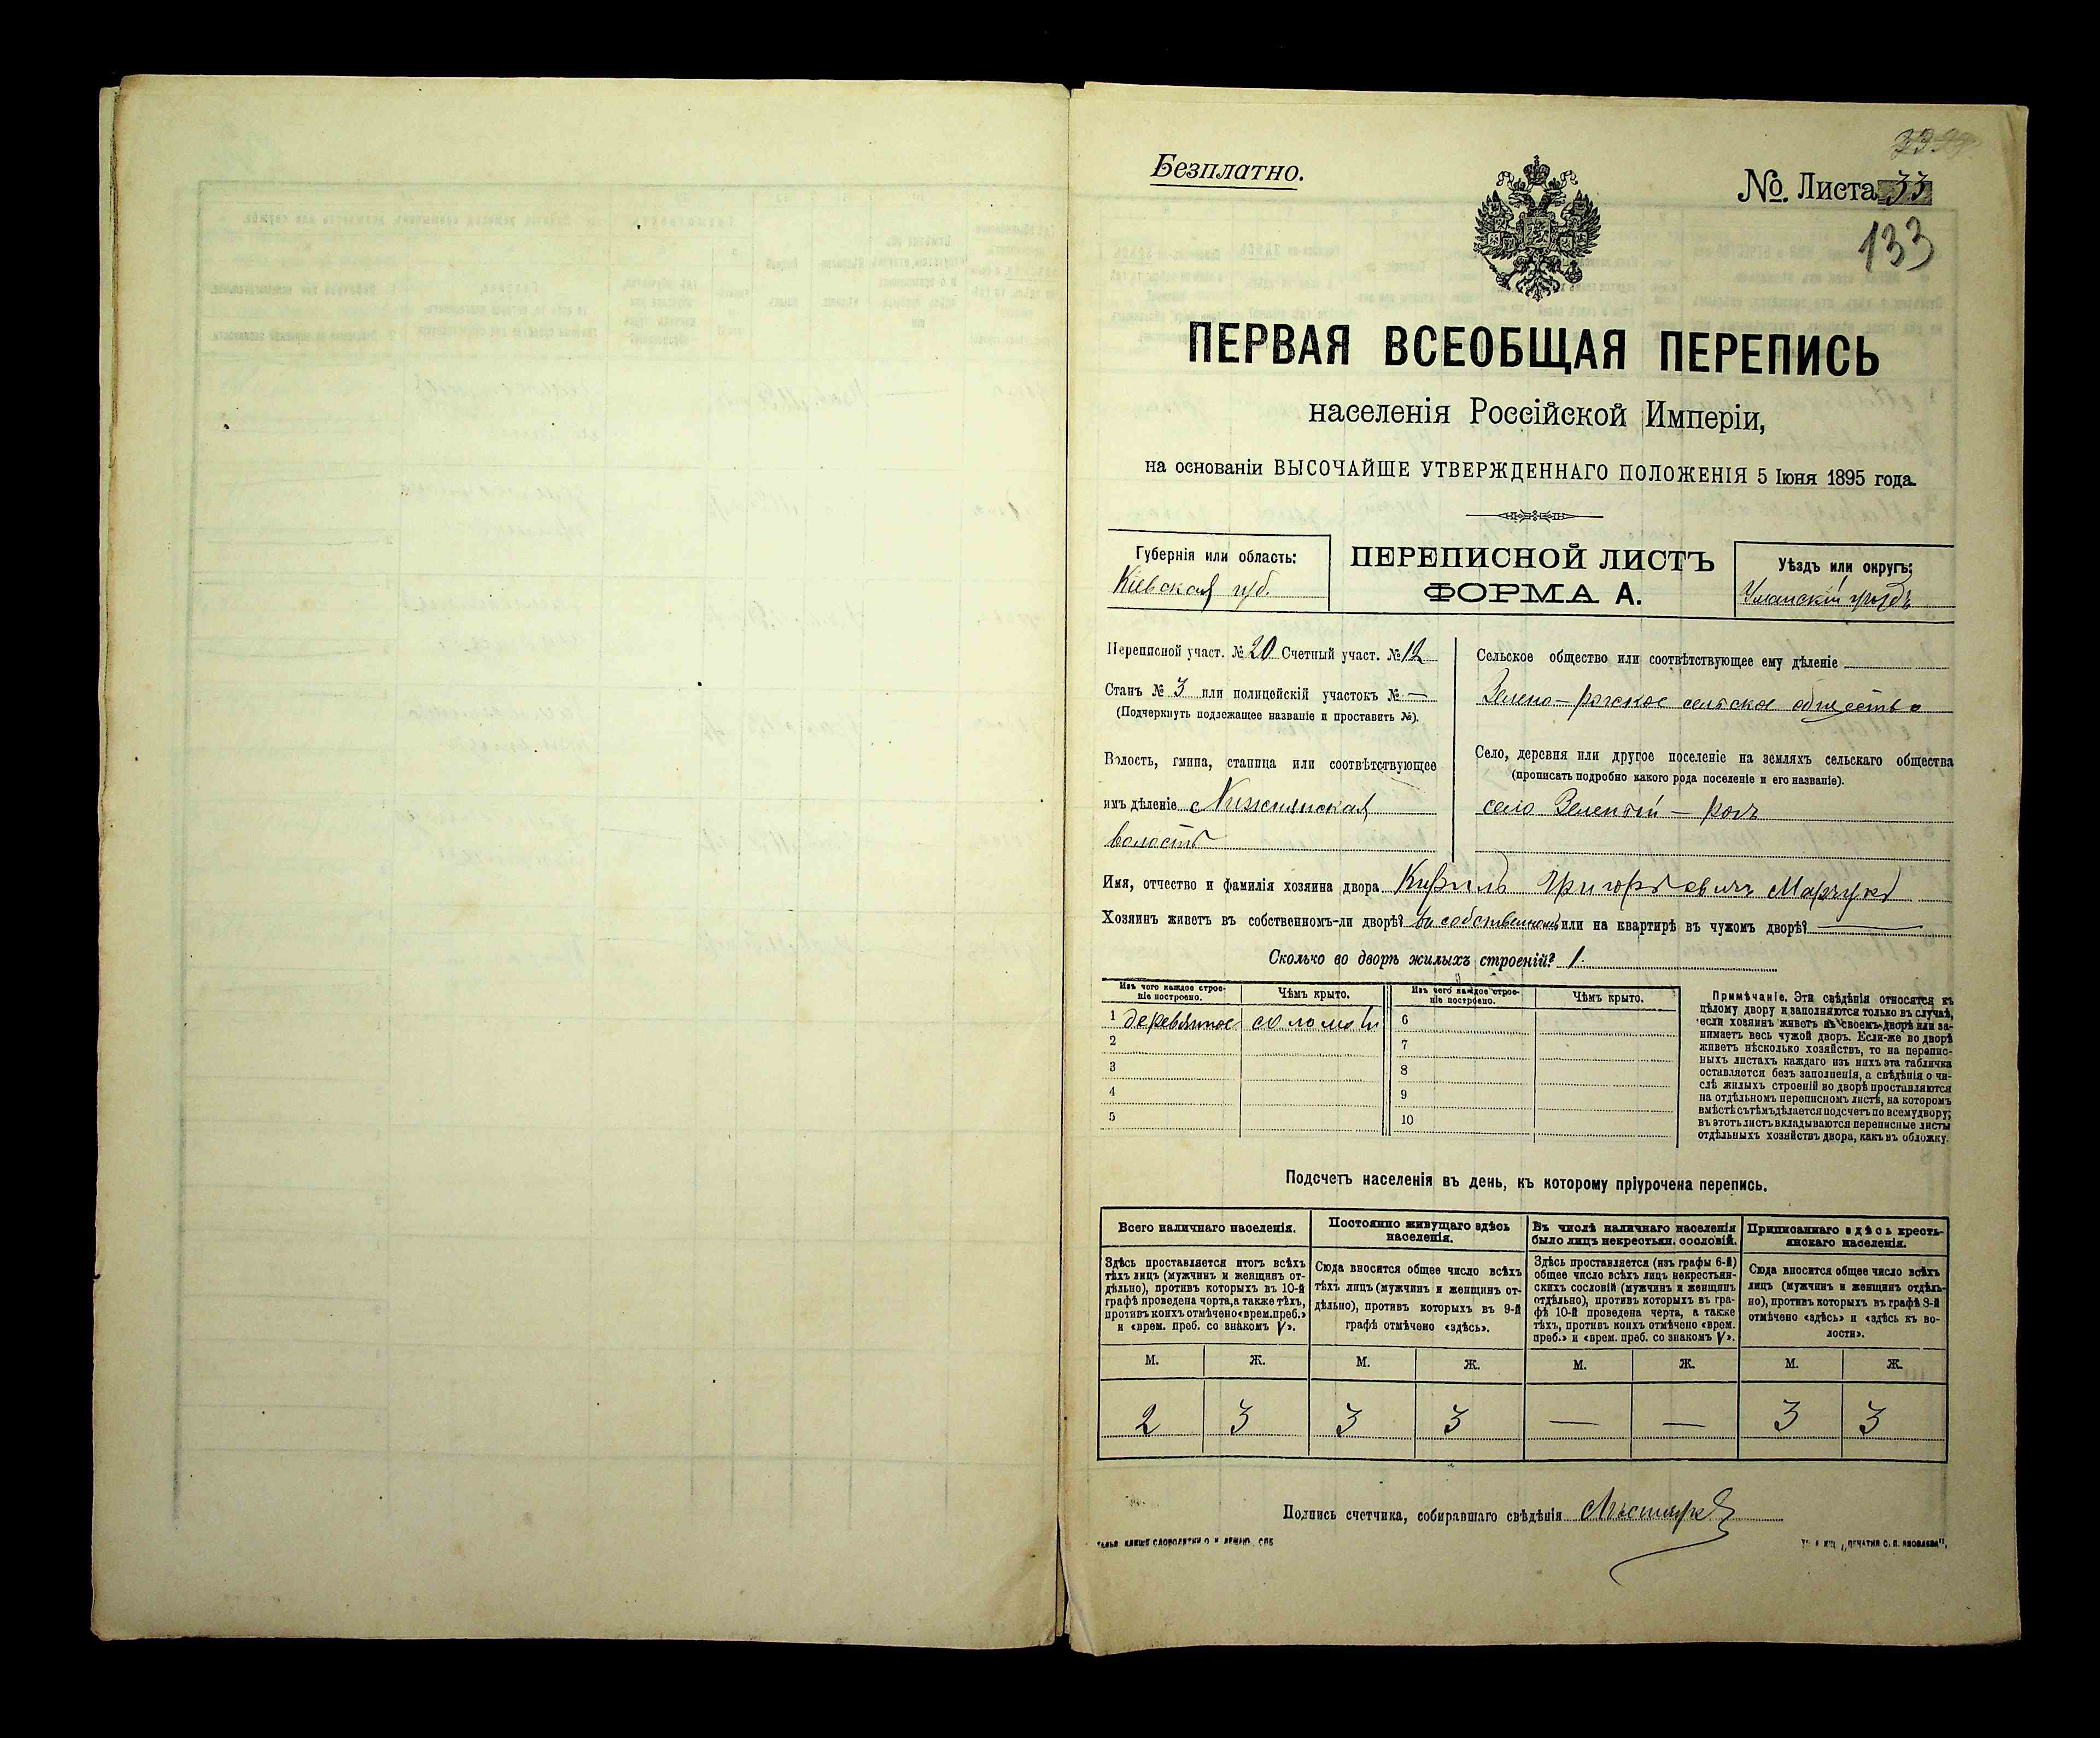 Безплатно.
№ Листа 33
133
ПЕРВАЯ ВСЕОБЩАЯ ПЕРЕПИСЬ
населенія Россійской Имперіи,
на основаніи ВЫСОЧАЙШЕ УТВЕРЖДЕННАГО ПОЛОЖЕНІЯ 5 Іюня 1895 года.
Губернія или область:
Кіевская губ.
ПЕРЕПИСНОЙ ЛИСТЪ
ФОРМА А.
Уѣздъ или округъ:
Уманскій уѣздъ
Переписной участ. № 20 Счетный участ. № 12
Станъ № 3 или полицейскій участокъ № —
(Подчеркнуть подлежащее названіе и проставить №).
Волость, гмина, станица или соотвѣтствующее
имъ дѣленіе
волость
Сельское общество или соотвѣтствующее ему дѣленіе
Зелено-рогское сельское общество
Село, деревня или другое поселеніе на земляхъ сельскаго общества
(прописать подробно какого рода поселеніе и его названіе).
село Зеленый — Рогъ
Имя, отчество и фамилія хозяина двора Кирилъ Григорьевичъ Марчукъ
Хозяинъ живетъ въ собственномъ-ли дворѣ? въ собственномъ или на квартирѣ въ чужомъ дворѣ? —
Сколько во дворѣ жилыхъ строеній? 1.
Изъ чего каждое строе-
ніе построено.
Чѣмъ крыто.
Изъ чего каждое строе-
ніе построено.
Чѣмъ крыто.
1 деревянное соломой 6
2 7
3 8
4 9
5 10
Примѣчаніе. Эти свѣдѣнія относятся къ
цѣлому двору и заполняются только въ случаѣ,
если хозяинъ живетъ въ своемъ дворѣ или за-
нимаетъ весь чужой дворъ. Если-же во дворѣ
живетъ нѣсколько хозяйствъ, то на перепис-
ныхъ листахъ каждаго изъ нихъ эта табличка
оставляется безъ заполненія, а свѣдѣнія о чи-
слѣ жилыхъ строеній во дворѣ проставляются
на отдѣльномъ переписномъ листѣ, на которомъ
вмѣстѣ съ тѣмъ дѣлается подсчетъ по всему двору;
въ этотъ листъ вкладываются переписные листы
отдѣльныхъ хозяйствъ двора, какъ въ обложку.
Подсчетъ населенія въ день, къ которому пріурочена перепись.
Всего наличнаго населенія.
Постоянно живущаго здѣсь
населенія.
Въ числѣ наличнаго населенія
было лицъ некрестьян. сословій.
Приписаннаго здѣсь кресть-
янскаго населенія.
Здѣсь проставляется итогъ всѣхъ
тѣхъ лицъ (мужчинъ и женщинъ от-
дѣльно), противъ которыхъ въ 10-й
графѣ проведена черта, а также тѣхъ,
противъ коихъ отмѣчено «врем. преб.»
и «врем. преб. со знакомъ V».
Сюда вносится общее число всѣхъ
тѣхъ лицъ (мужчинъ и женщинъ от-
дѣльно), противъ которыхъ въ 9-й
графѣ отмѣчено «здѣсь».
Здѣсь проставляется (изъ графы 6-й)
общее число всѣхъ лицъ некрестьян-
скихъ сословій (мужчинъ и женщинъ
отдѣльно), противъ которыхъ въ гра-
фѣ 10-й проведена черта, а также
тѣхъ, противъ коихъ отмѣчено «врем.
преб.» и «врем. преб. со знакомъ V».
Сюда вносится общее число всѣхъ
лицъ (мужчинъ и женщинъ отдѣль-
но), противъ которыхъ въ графѣ 8-й
отмѣчено «здѣсь» и «здѣсь къ во-
лости».
М. Ж. М. Ж. М. Ж. М. Ж.
2 3 3 3 — — 3 3
Подпись счетчика, собиравшаго свѣдѣнія